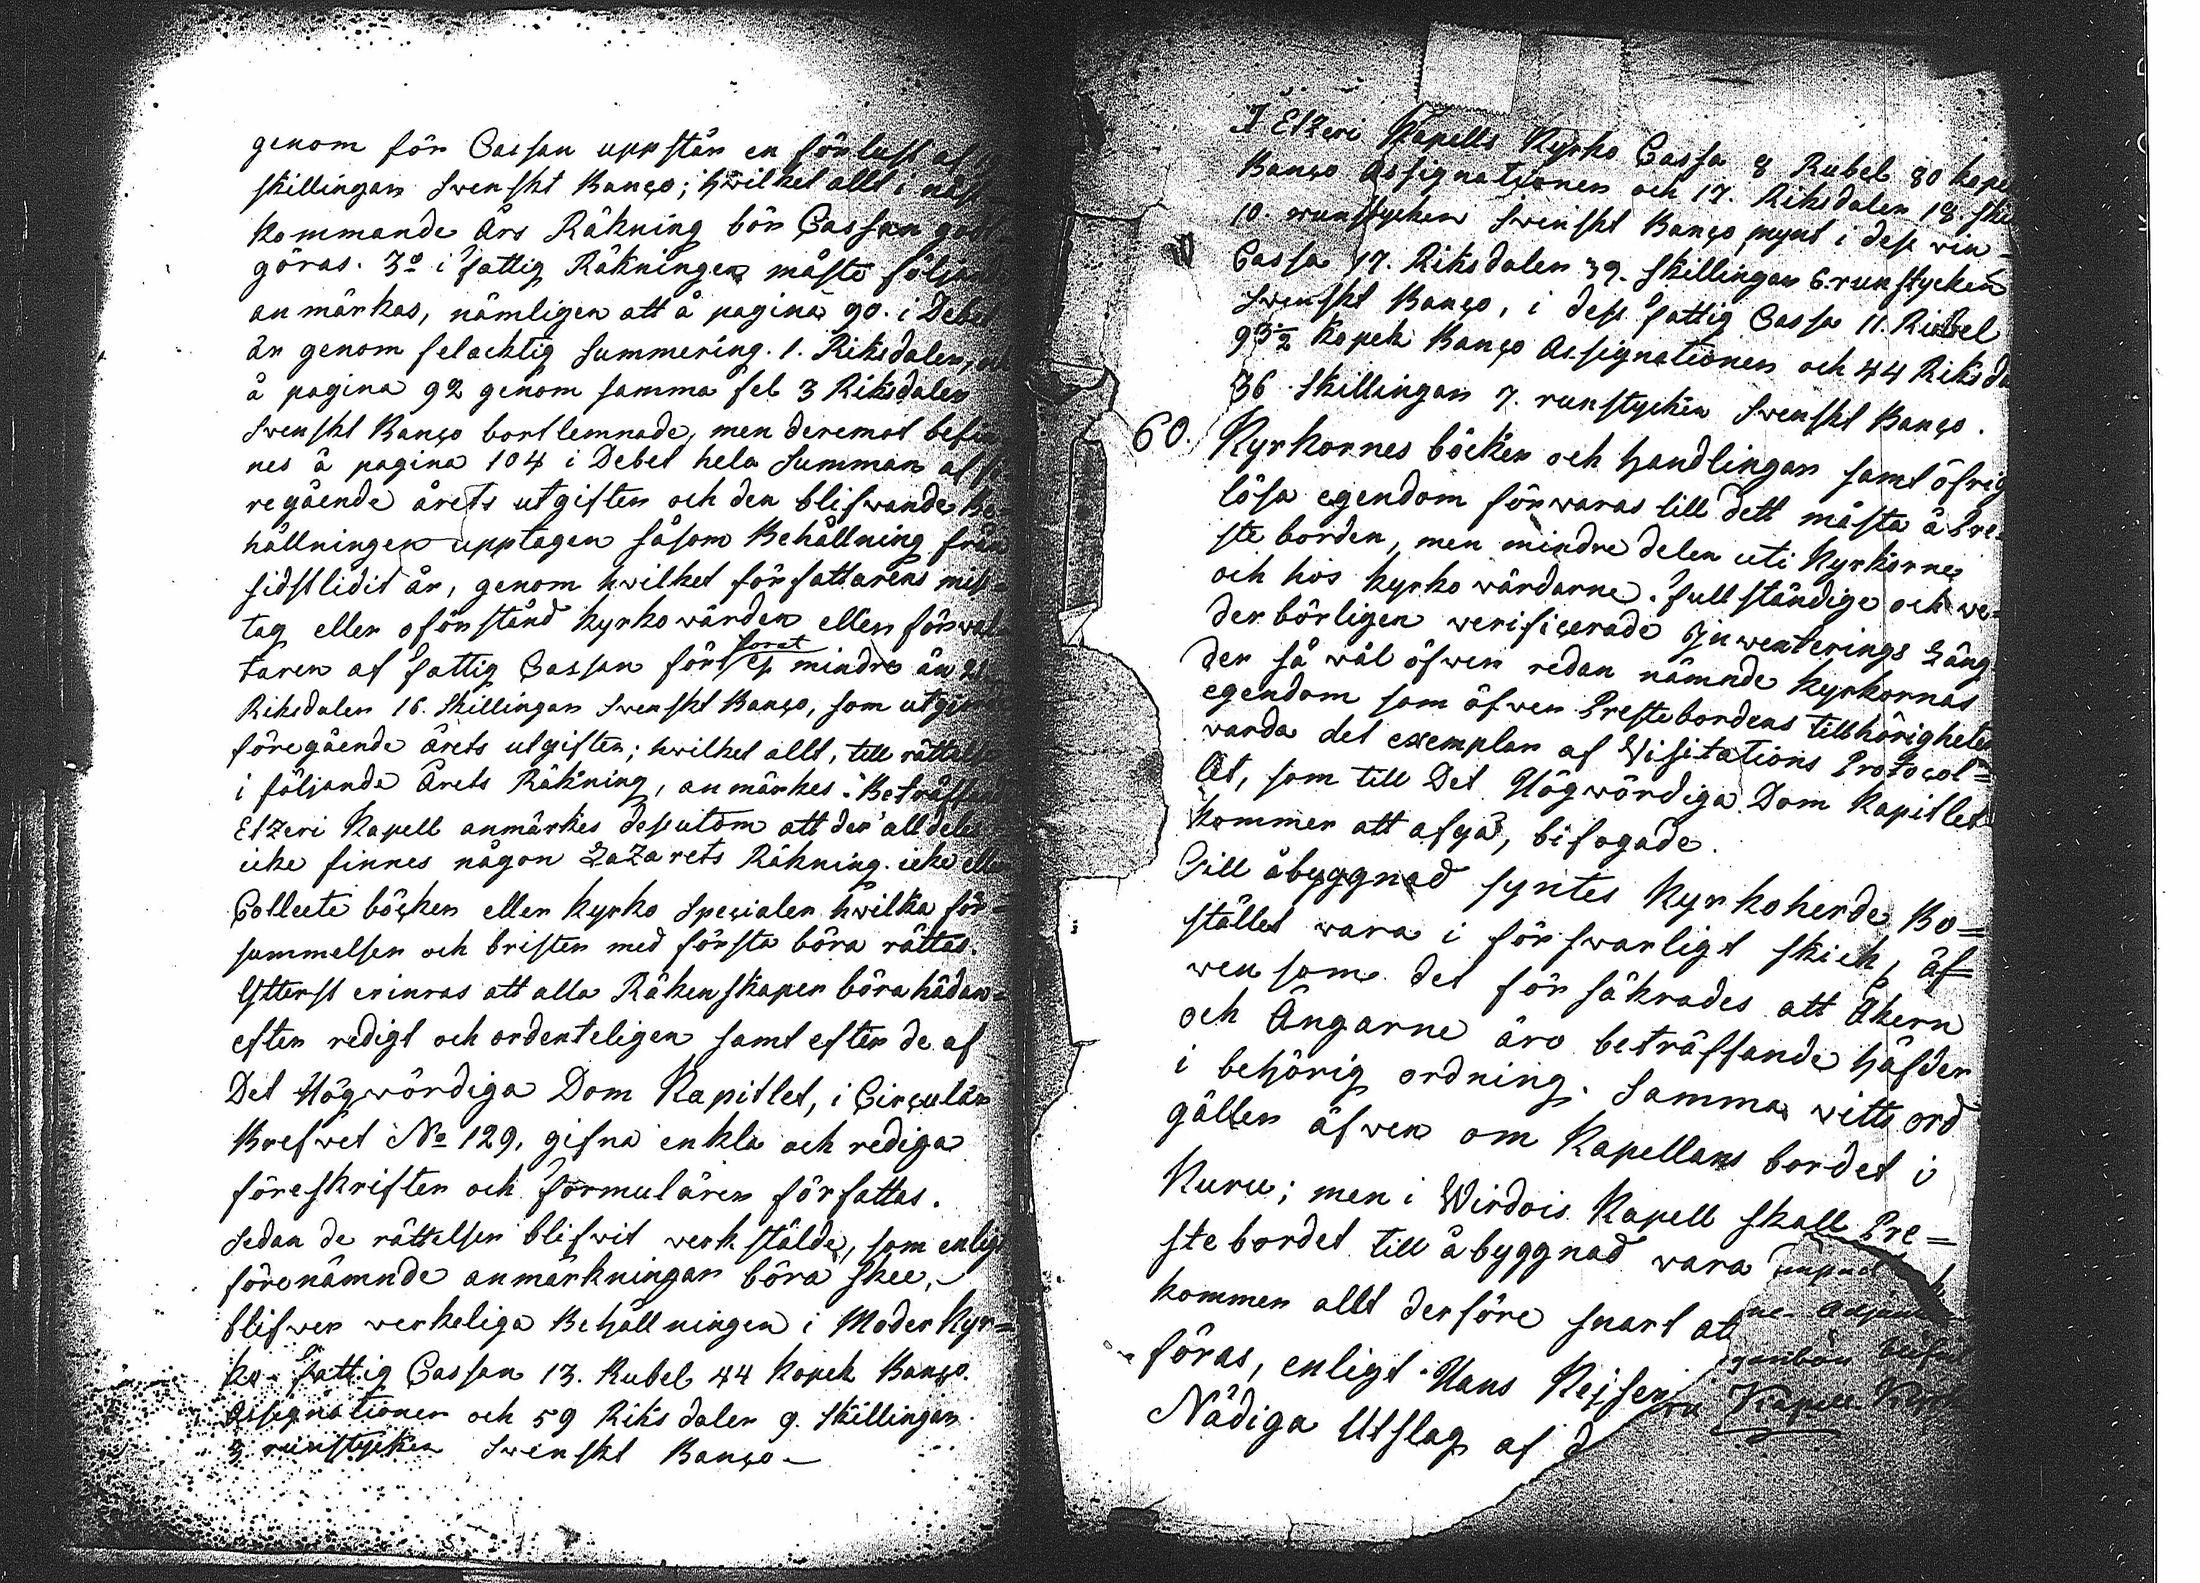 genom för Cassan uppstår en förlust af
skillingar Swenskt Banco; hwilket allt i näst-
kommande Års Räkning bör Cassan godt
göras. 3o i fattig Räkningen måste följande
anmärkas, nämligen att å pagina 90. i Debet
är genom felacktig summering. 1. Riksdaler, och
å pagina 92 genom samma fel 3 Riksdaler
Swenskt Banco bortlemnade, men deremot befin
nes å pagina 104 i Debet hela Summan af fö
regående årets utgifter och den blifwande Be-
hållningen upptagen såsom Behållning från
sidstlidit år, genom hwilket författarens miss-
tag eller oförstånd kyrkowärden eller förwal
taren af fattig Cassan förlorat ej mindre än 21
Riksdaler 16. Skillingar Swenskt Banco, som utgjorde
föregående årets utgifter; hwilket allt, till rättelse
i följande Årets Räkning, anmärkes. Beträffande
Etzeri Kapell anmärkes dessutom att der alldeles
icke finnes någon Lazarets Räkning. icke eller
Collecte böcker eller kyrko Specialer hwilka för-
summelser och brister med första böra rättas.
Ytterst erinras att alla Räkenskaper böra hädan-
efter redigt och ordenteligen samt efter de af
Det Högwördiga Dom Kapitlet, i Circulär
Brefwet No 129, gifna enkla och rediga
föreskrifter och formulärer författas.
Sedan de rättelser blifwit werkstälde, som enligt
förenämnde anmärkningar böra skee,
blifwer werkeliga Behållningen i Moder Kyr=
ko fattig Cassan 13. Rubel 44 Kopek Banco
Assignationer och 59 Riksdaler 9. Skillingar
3 runstycken Swenskt Banco -
I Etzeri Kapells Kyrko Cassa 8 Rubel 80 kopek
Banco Assignationer och 17. Riksdaler 18. Ski
10. runstycken Swenskt Banco mynt i dess win-
Cassa 17. Riksdaler 39. Skillingar 6 runstycken
Swenskt Banco, i dess fattig Cassa 11. Rubel
93½ Kopek Banco Assignationer och 44 Riksda
36 Skillingar 7. runstycken Swenskt Banco.
60. Kyrkornes böcker och handlingar samt öfrig
lösa egendom förwaras till dett mästa å Pre-
steborden, men mindre delen uti Kyrkorne
och hos kyrkowärdarne. Fullständige och we-
derbörligen werificerade Inwenterings Läng
der så wäl öfwer redan nämnde kyrkornas
egendom som öfwer Prestebordens tillhörigheter
warda det exemplar af Visitations Protocol=
let, som till Det Högwördiga Dom Kapitlet
kommer att afgå, bifogade.
Till åbyggnad syntes Kyrkoherde Bo=
stället wara i förswarligt skick, äf=
wensom det försäkrades att Åkern
och Ängarne äro beträffande häfden
i behörig ordning. Samma wittsord
gäller äfwen om Kapellans bordet i
Kuru; men i Wirdois Kapell skall Pre=
stebordet till åbyggnad wara
kommer allt derföre snart at
föras, enligt Hans Kejser
Nådiga Utslag af d
Kapell Kyrk